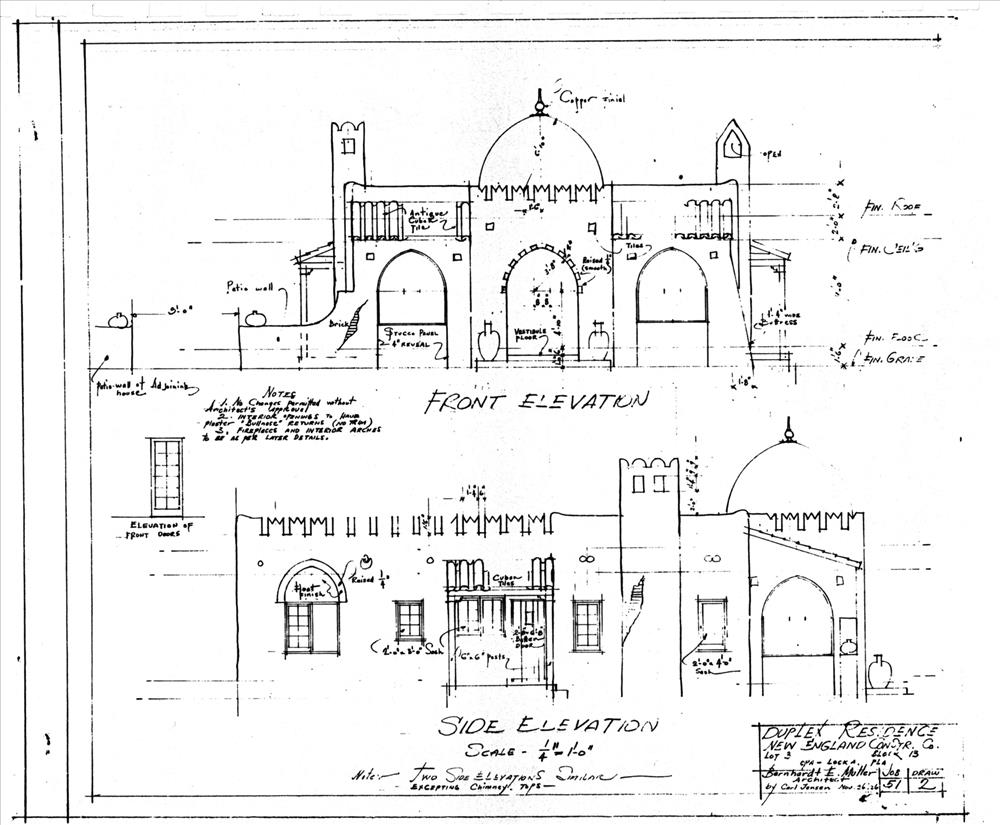 Copper Finial
OPEN
Antique
Cuban
Tile
Tiles
Raised ½"
(smooth)
FIN. ROOF
FIN. CEIL'G
Patio wall
9'-0"
Brick
Stucco Panel
4" REVEAL
VESTIBULE
FLOOR
1'-4" wide
Buttress
FIN. FLOOR
FIN. GRADE
1'-8"
Patio wall of Adjoining
house
FRONT ELEVATION
NOTES
1. No Changes permitted without
Architect's approval
2. INTERIOR OPENINGS TO HAVE
Plaster "Bullnose" RETURNS (NO TRIM)
3. FIREPLACES AND INTERIOR ARCHES
TO BE AS PER LATER DETAILS.
ELEVATION OF
FRONT DOORS
Float
Finish
Raised ¼"
Cuban
Tiles
2'-0" x 3'-0" Sash
6" x 6" posts
Batten
Door
2'-0" x 4'-0"
Sash
SIDE ELEVATION
SCALE - ¼" = 1'-0"
Note:- TWO SIDE ELEVATIONS SIMILAR
EXCEPTING Chimney Tops
DUPLEX RESIDENCE
NEW ENGLAND CONSTR. CO.
LOT 3 BLOCK 13
OPA-LOCKA, FLA
Bernhardt E. Muller
Architect
by Carl Jensen Nov. 26:26
JOB
51
DRAW
2